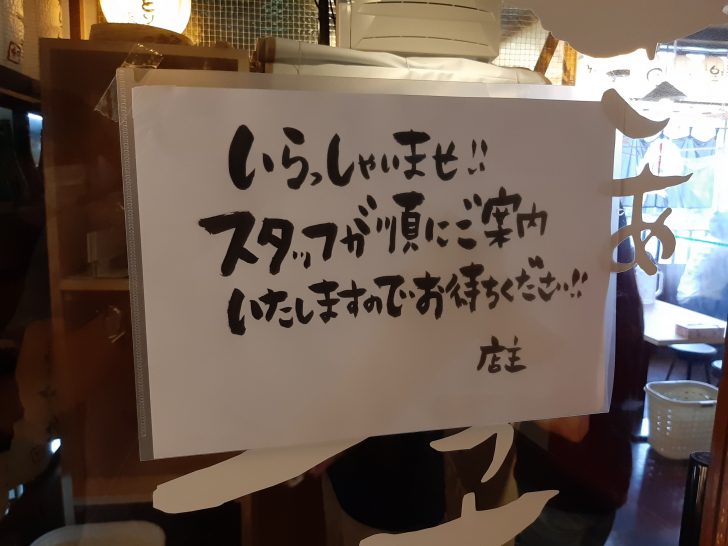 いらっしゃいませ!!
スタッフが順にご案内
いたしますのでお待ちください!!
店主